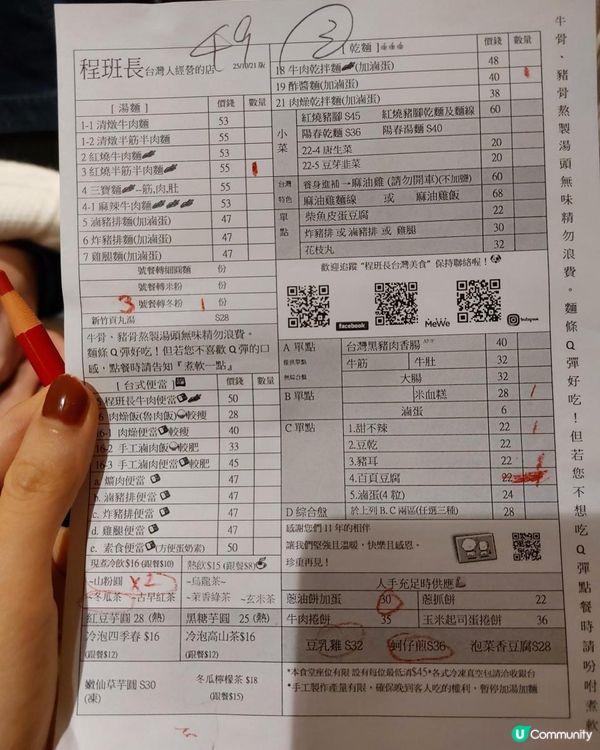 49
2
程班長台灣人經營的店 25/10/21版
[湯麵] 價錢 數量
1-1 清燉牛肉麵 53
1-2 清燉半筋半肉麵 55
2 紅燒牛肉麵 53
3 紅燒半筋半肉麵 55
4 三寶麵~筋,肉,肚 55
4-1 麻辣牛肉麵 53
5 滷豬排麵(加滷蛋) 47
6 炸豬排麵(加滷蛋) 47
7 雞腿麵(加滷蛋) 47
號餐轉細圓麵 份
號餐轉米粉 份
3 號餐轉冬粉 1 份
新竹貢丸湯 S28
牛骨、豬骨熬製湯頭無味精勿浪費。
麵條Q彈好吃!但若您不喜歡Q彈的口
感,點餐時請告知『煮軟一點』
[台式便當] 價錢 數量
程班長牛肉便當 50
肉燥飯(魯肉飯)較瘦 28
16-1 肉燥便當較瘦 40
16-2 手工滷肉飯較肥 33
16-3 手工滷肉便當較肥 45
a. 爌肉便當 47
b. 滷豬排便當 47
c. 炸豬排便當 47
d. 雞腿便當 47
e. 素食便當(方便蛋奶素) 50
現煮冷飲$16(跟餐$10) 熱飲$15(跟餐$8)
~山粉圓 x2 ~烏龍茶~
~冬瓜茶~ ~古早紅茶 ~茉香綠茶 ~玄米茶
紅豆芋圓 28 (熱) 黑糖芋圓 25 (熱)
冷泡四季春 $16 冷泡高山茶$16
(跟餐$12) (跟餐$12)
嫩仙草芋圓 S30 冬瓜檸檬茶 $18
(凍) (跟餐$15)
[乾麵] 價錢 數量
18 牛肉乾拌麵(加滷蛋) 48
19 酢醬麵(加滷蛋) 40
21 肉燥乾拌麵(加滷蛋) 38
小菜
紅燒豬腳 S45 紅燒豬腳乾麵及麵線 60
陽春乾麵 S36 陽春湯麵 S40
22-4 唐生菜 20
22-5 豆芽韭菜 20
台灣特色
養身進補→麻油雞 (請勿開車)(不加鹽) 60
麻油雞麵線 或 麻油雞飯 68
單點
柴魚皮蛋豆腐 22
炸豬排 或 滷豬排 或 雞腿 30
花枝丸 32
歡迎追蹤 "程班長台灣美食" 保持聯絡喔!
facebook MeWe Instagram
A 單點 台灣黑豬肉香腸 40
牛筋 牛肚 32
大腸 32
B 單點 米血糕 28
滷蛋 6
C 單點 1.甜不辣 22
2.豆乾 22
3.豬耳 22
4.百頁豆腐 22
5.滷蛋(4 粒) 24
D 綜合盤 於上列 B. C 兩區(任選三種) 28
感謝您們 11 年的相伴
讓我們堅強且溫暖,快樂且感恩。
珍重再見!
人手充足時供應
蔥油餅加蛋 30 蔥抓餅 22
牛肉捲餅 35 玉米起司蛋捲餅 36
豆乳雞 S32 蚵仔煎S36 泡菜香豆腐S28
*本食堂座位有限 設有每位最低消$45*各式冷凍真空包請洽收銀台
*手工製作產量有限,確保晚到客人吃的權利,暫停加湯加麵
牛骨、豬骨熬製湯頭無味精勿浪費。麵條Q彈好吃!但若您不想吃Q彈點餐時請吩咐煮軟
U Community